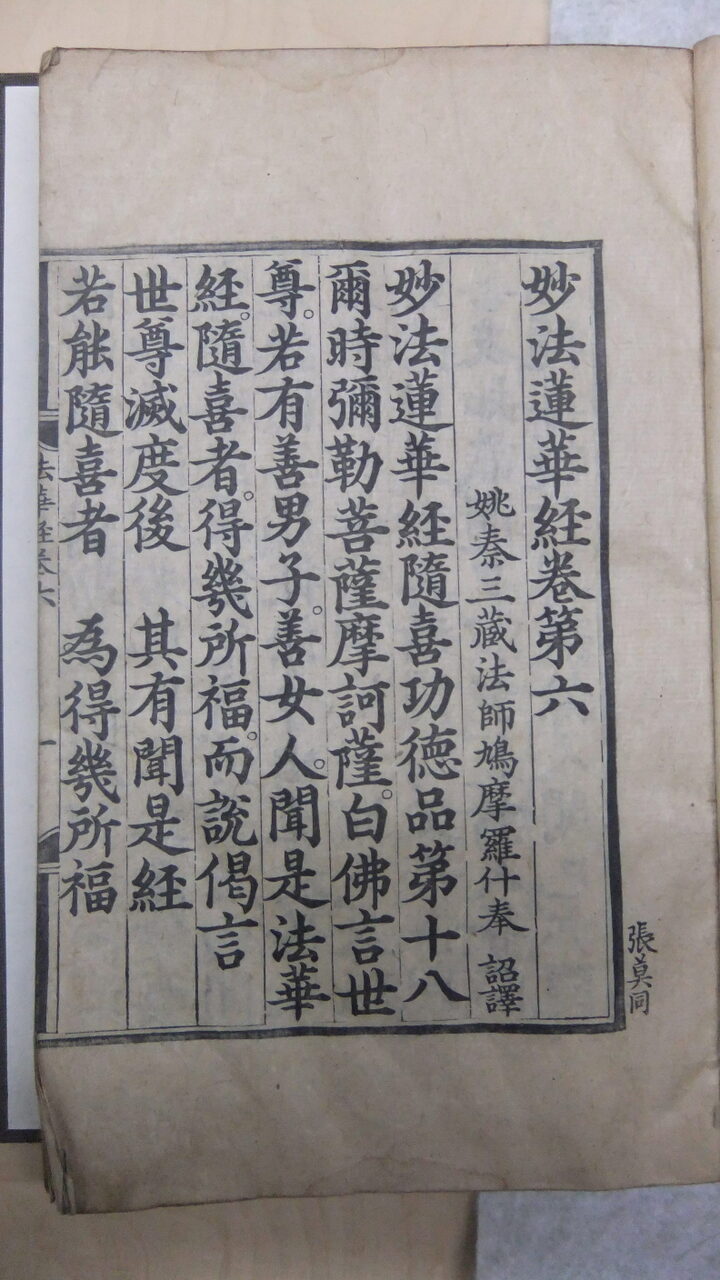 妙法蓮華經卷第六
姚秦三藏法師鳩摩羅什奉 詔譯
妙法蓮華經隨喜功德品第十八
爾時彌勒菩薩摩訶薩。白佛言世
尊。若有善男子。善女人。聞是法華
經。隨喜者。得幾所福。而說偈言
世尊滅度後 其有聞是經
若能隨喜者 為得幾所福
法華經卷六
一
張莫同